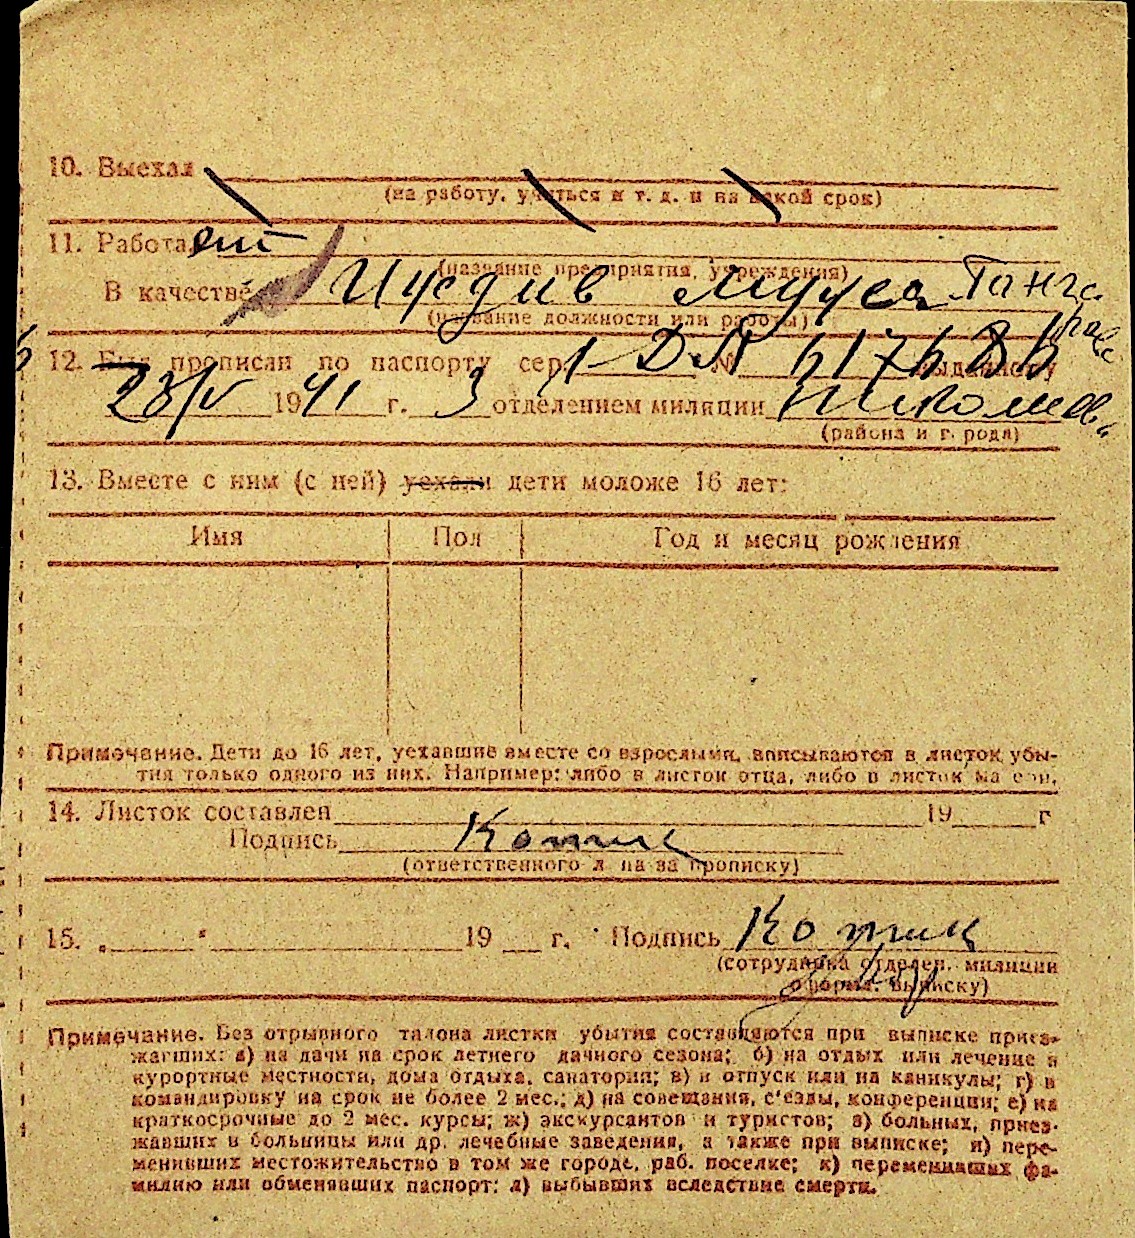 10. Выехал
(на работу, учиться и т. д. и на какой срок)
11. Работает
(название предприятия, учреждения)
В качестве
(название должности или работы)
12. Был прописан по паспорту сер. № выданному
28/V 1941 г. 3 отделением милиции
(района и города)
13. Вместе с ним (с ней) уехали дети моложе 16 лет:
Имя Пол Год и месяц рождения
Примечание. Дети до 16 лет, уехавшие вместе со взрослыми, вписываются в листок убы-
тия только одного из них. Например: либо в листок отца, либо в листок матери.
14. Листок составлен 19 г
Подпись
(ответственного л. па за прописку)
15. „ “ 19 г. Подпись
(сотрудника отделен. милиции
оформ. выписку)
Примечание. Без отрывного талона листки убытия составляются при выписке приез-
жавших: а) на дачи на срок летнего дачного сезона; б) на отдых или лечение в
курортные местности, дома отдыха, санатории; в) в отпуск или на каникулы; г) в
командировку на срок не более 2 мес.; д) на совещания, с'езды, конференции; е) на
краткосрочные до 2 мес. курсы; ж) экскурсантов и туристов; з) больных, приез-
жавших в больницы или др. лечебные заведения, а также при выписке; и) пере-
менивших местожительство в том же городе, раб. поселке; к) переменивших фа-
милию или обменявших паспорт; л) выбывших вследствие смерти.